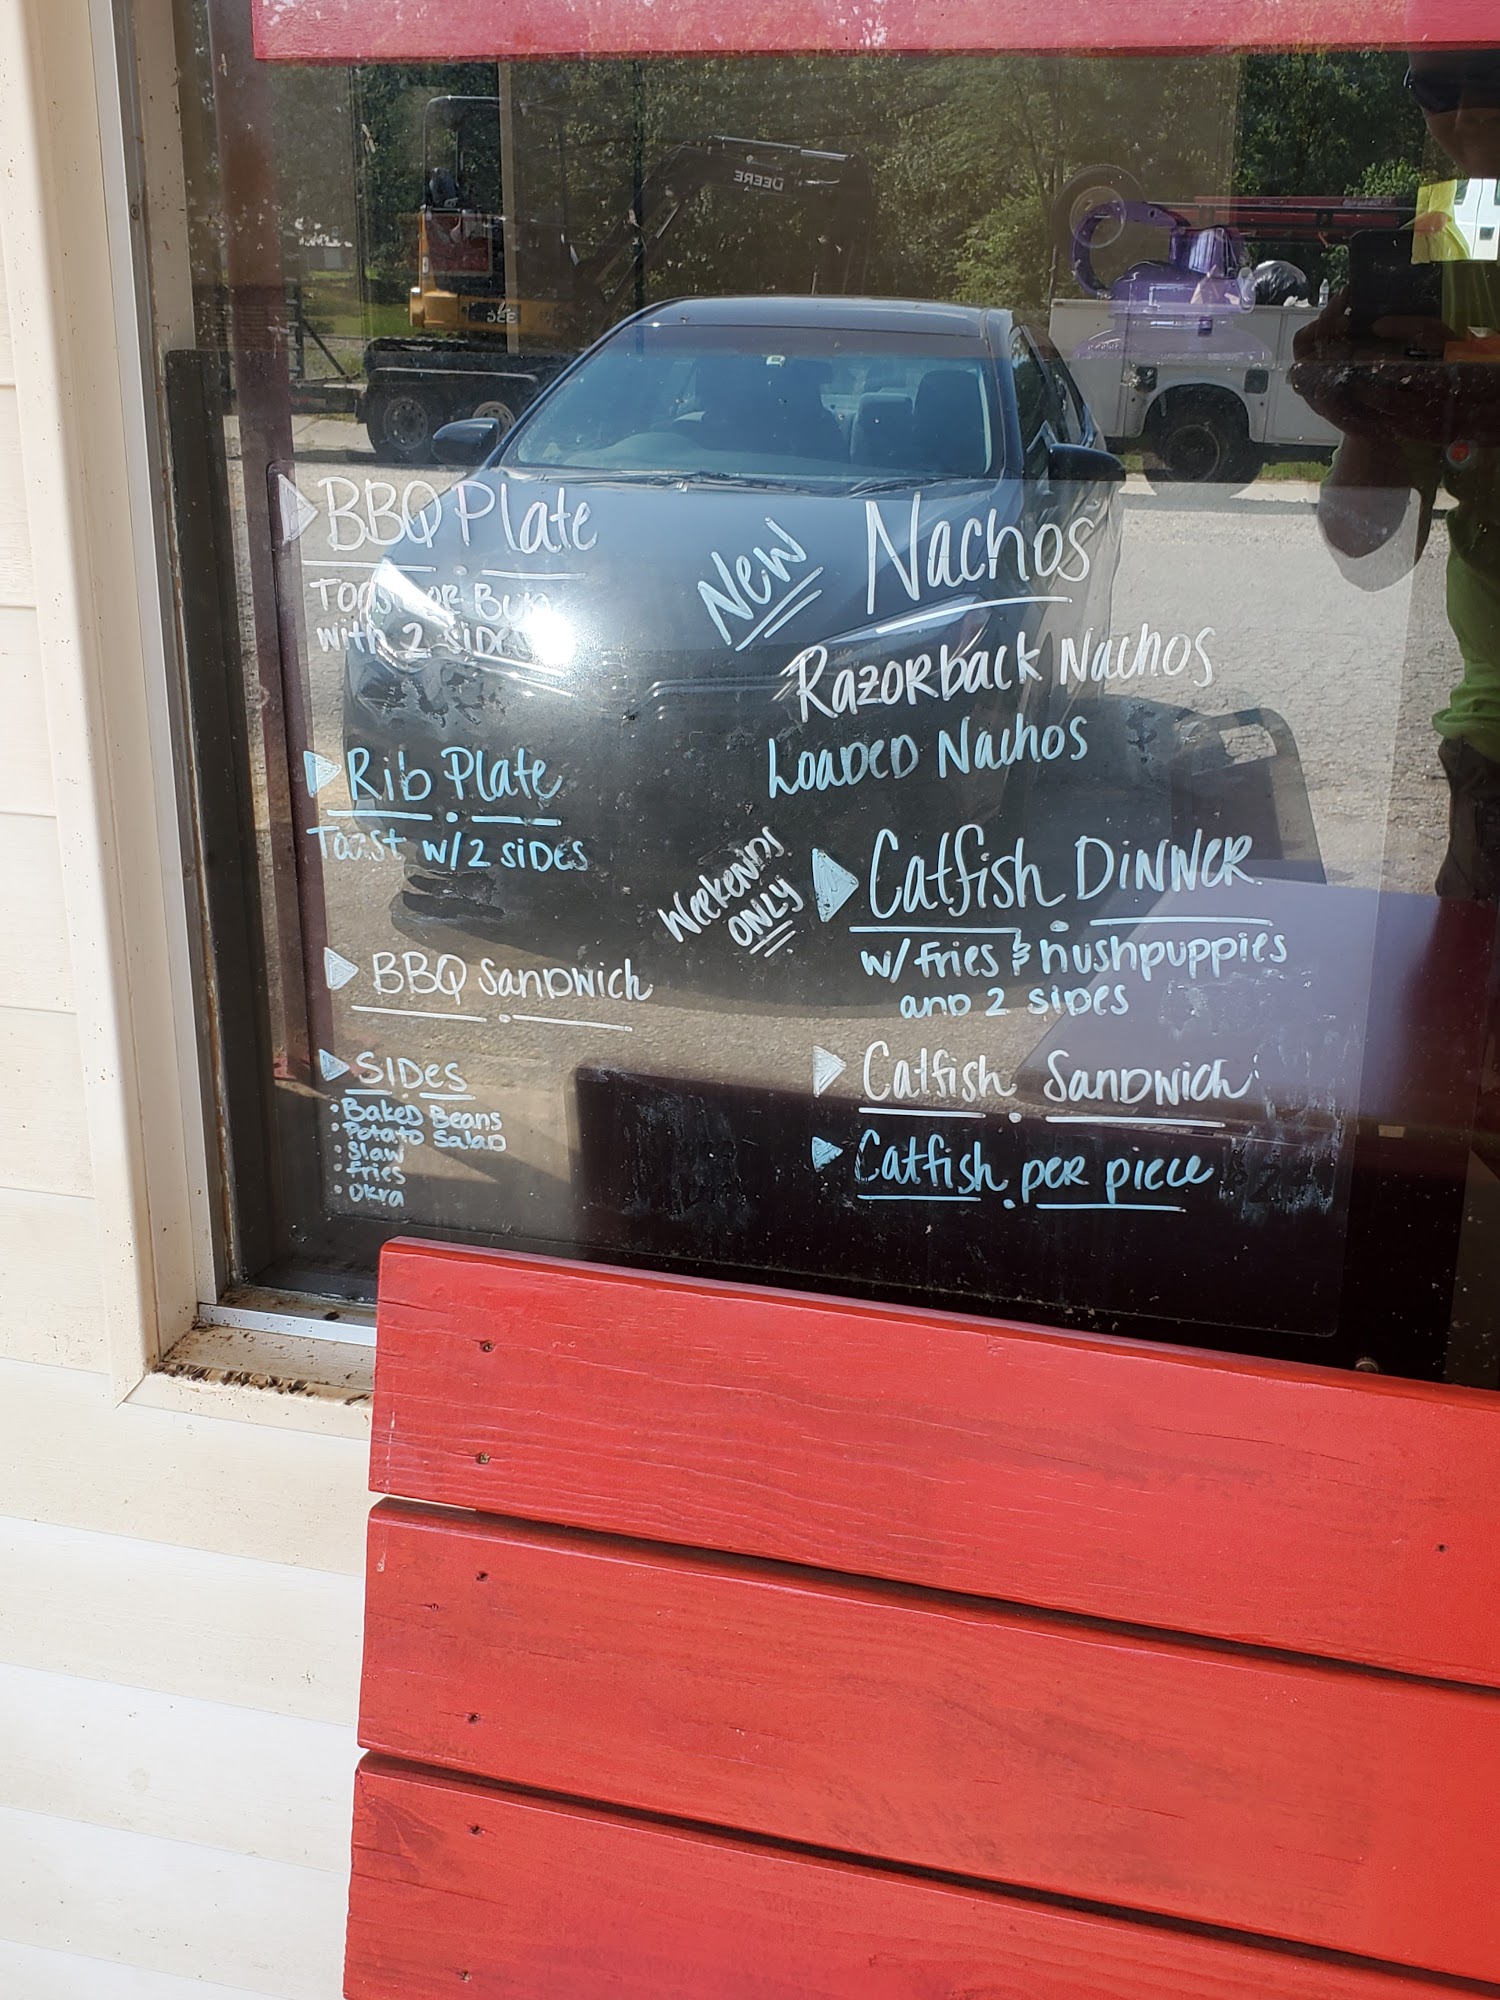 BBQ Plate
Toast or Bun
with 2 sides
Rib Plate
Toast w/2 sides
BBQ Sandwich
Sides
• Baked Beans
• Potato Salad
• Slaw
• Fries
• Okra
New Nachos
Razorback Nachos
Loaded Nachos
Weekends
ONLY
Catfish Dinner
w/ fries & hushpuppies
and 2 sides
Catfish Sandwich
Catfish per piece
DEERE